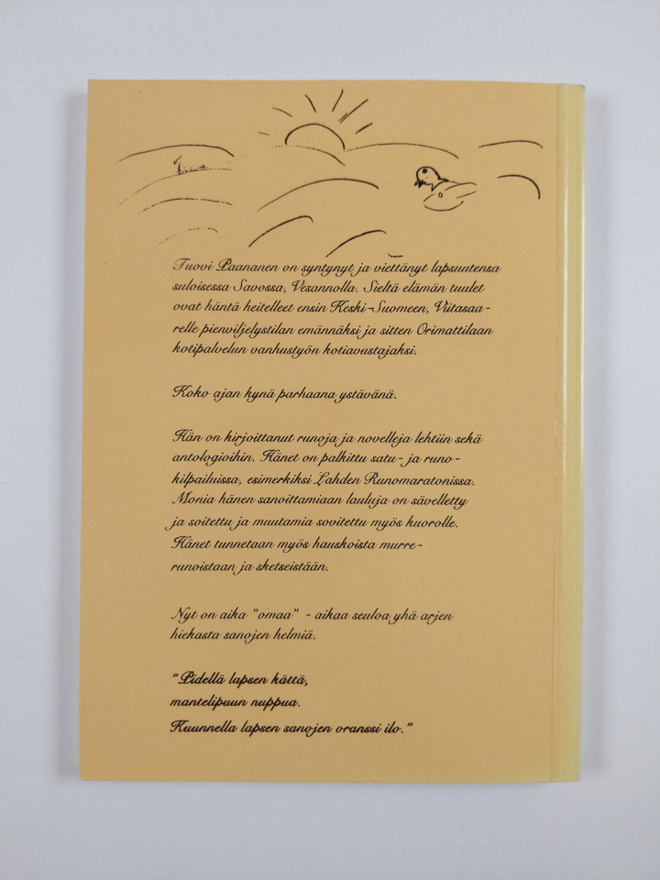 Tuovi Paananen on syntynyt ja viettänyt lapsuutensa
suloisessa Savossa, Vesannolla. Sieltä elämän tuulet
ovat häntä heitelleet ensin Keski-Suomeen, Viitasaa-
relle pienviljelystilan emännäksi ja sitten Orimattilaan
kotipalvelun vanhustyön kotiavustajaksi.
Koko ajan kynä parhaana ystävänä.
Hän on kirjoittanut runoja ja novelleja lehtiin sekä
antologioihin. Hänet on palkittu satu- ja runo-
kilpailuissa, esimerkiksi Lahden Runomaratonissa.
Monia hänen sanoittamiaan lauluja on sävelletty
ja soitettu ja muutamia sovitettu myös kuorolle.
Hänet tunnetaan myös hauskoista murre-
runoistaan ja sketseistään.
Nyt on aika "omaa" - aikaa seuloa yhä arjen
hiekasta sanojen helmiä.
"Pidellä lapsen kättä,
mantelipuun nuppua.
Kuunnella lapsen sanojen oranssi ilo."